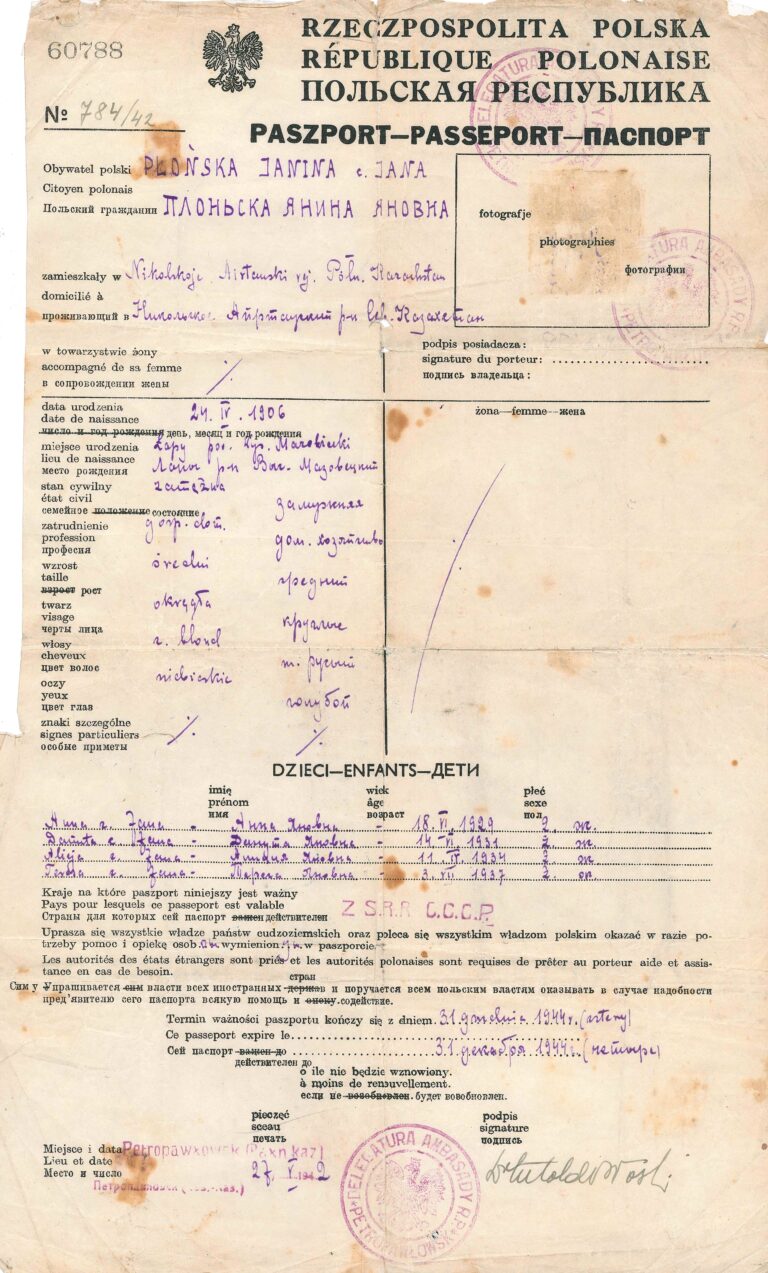 60788
RZECZPOSPOLITA POLSKA
RÉPUBLIQUE POLONAISE
ПОЛЬСКАЯ РЕСПУБЛИКА
№ 784/42
PASZPORT—PASSEPORT—ПАСПОРТ
Obywatel polski PŁOŃSKA JANINA c. JANA
Citoyen polonais
Польский гражданин ПЛОНЬСКА ЯНИНА ЯНОВНА
fotografje
photographies
фотографии
zamieszkały w Nikolskoje, Airtauski rej. Półn. Kazachstan
domicilié à
проживающий в Никольское Айртауский р-н Сев. Казахстан
DELEGATURA AMBASADY R.P.
w towarzystwie żony
accompagné de sa femme
в сопровождении жены
podpis posiadacza:
signature du porteur:
подпись владельца:
data urodzenia 24. IV. 1906
date de naissance
число и год рождения день, месяц и год рождения
żona—femme—жена
miejsce urodzenia Łapy pow. Wys. Mazowiecki
lieu de naissance
место рождения Лапы р-н Выс. Мазовецкий
stan cywilny zamężna
état civil
семейное положение состояние замужняя
zatrudnienie gosp. dom.
profession
професия дом. хозяйство
wzrost średni
taille
взрост рост средний
twarz okrągła
visage
черты лица круглые
włosy c. blond
cheveux
цвет волос т. русый
oczy niebieskie
yeux
цвет глаз голубой
znaki szczególne
signes particuliers
особые приметы
DZIECI—ENFANTS—ДЕТИ
imię wiek płeć
prénom âge sexe
имя возраст пол
Anna c. Jana - Анна Яновна - 18. VI. 1929 ż. ж.
Danuta c. Jana - Данута Яновна - 14. VI. 1931 ż. ж.
Alicja c. Jana - Алиция Яновна - 11. IV. 1934 ż. ж.
Teresa c. Jana - Тереса Яновна - 3. VII 1937 ż. ж.
Kraje na które paszport niniejszy jest ważny
Pays pour lesquels ce passeport est valable
Страны для которых сей паспорт важен действителен
Z.S.R.R С.С.С.Р.
Uprasza się wszystkie władze państw cudzoziemskich oraz poleca się wszystkim władzom polskim okazać w razie po-
trzeby pomoc i opiekę osob. om wymienionym w paszporcie.
Les autorités des états étrangers sont priés et les autorités polonaises sont requises de prêter au porteur aide et assis-
tance en cas de besoin.
стран
Сим у Упрашивается сим власти всех иностранных держав и поручается всем польским властям оказывать в случае надобности
пред'явителю сего паспорта всякую помощь и опеку. содействие.
Termin ważności paszportu kończy się z dniem 31 grudnia 1944 r. (cztery)
Ce passeport expire le
Сей паспорт важен до 31 декабря 1944 г. (четыре)
действителен до
o ile nie będzie wznowiony.
à moins de renuvellement.
если не возобновлен. будет вовобновлен.
pieczęć podpis
sceau signature
печать подпись
Miejsce i data Petropawłowsk (Płn. kaz)
Lieu et date
Место и число 27. V 1942
Петропавловск (Сев.-Каз.)
DELEGATURA AMBASADY R.P.
PETROPAWŁOWSK